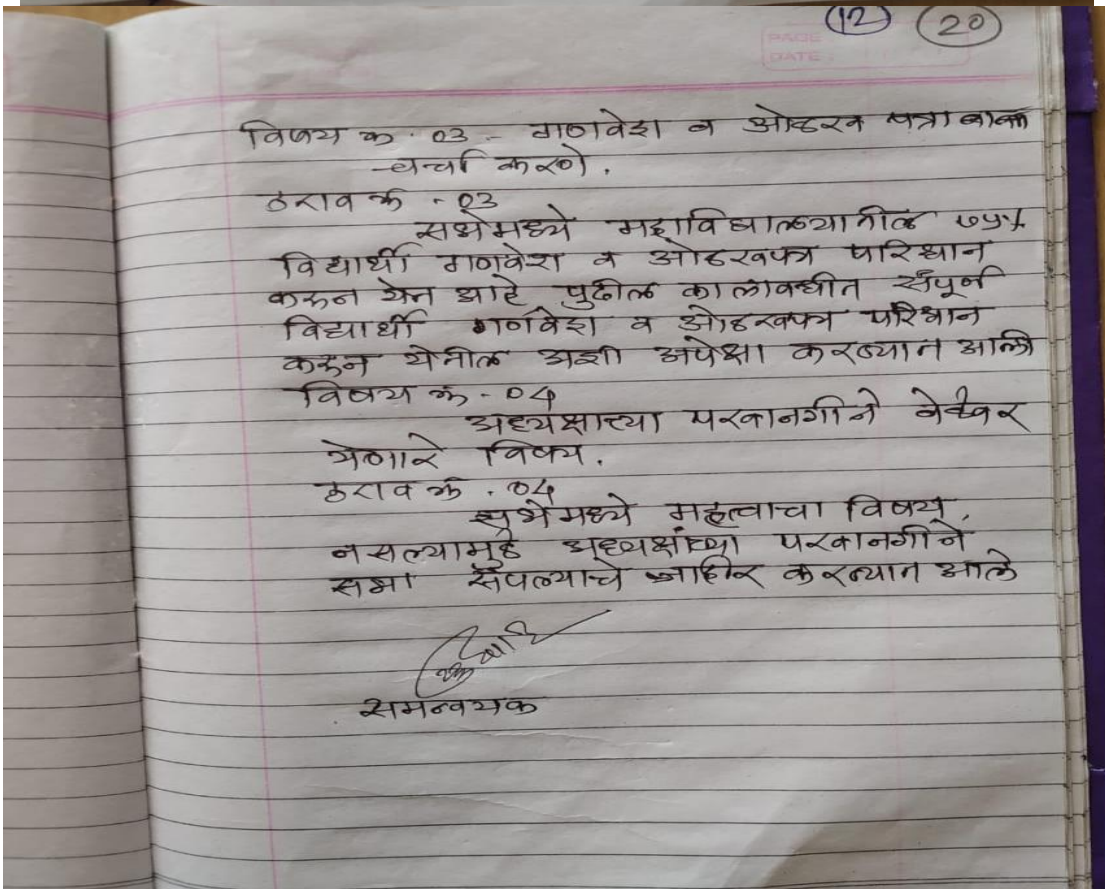 12 20
PAGE
DATE
विषय क्र. 03 - गणवेश व ओळख पत्रा बाबत
चर्चा करणे.
ठराव क्र - 03
सभेमध्ये महाविद्यालयातील ७५%
विद्यार्थी गणवेश व ओळखपत्र परिधान
करून येत आहे पुढील कालावधीत संपूर्ण
विद्यार्थी गणवेश व ओळखपत्र परिधान
करून येतील अशी अपेक्षा करण्यात आली
विषय क्र - 04
अध्यक्षाच्या परवानगीने वेळेवर
येणारे विषय.
ठराव क्र. 04
सभेमध्ये महत्वाचा विषय.
नसल्यामुळे अध्यक्षांच्या परवानगीने
सभा संपल्याचे जाहीर करण्यात आले
समन्वयक